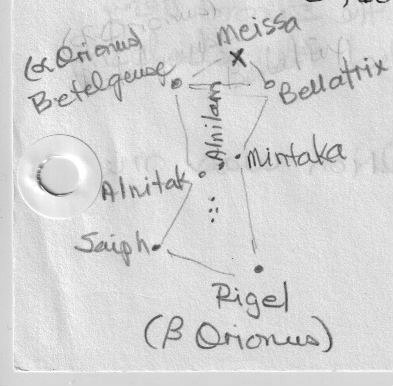 Meissa
(α Orionus)
Betelgeuse
Bellatrix
Alnilam
Mintaka
Alnitak
Saiph
Rigel
(β Orionus)